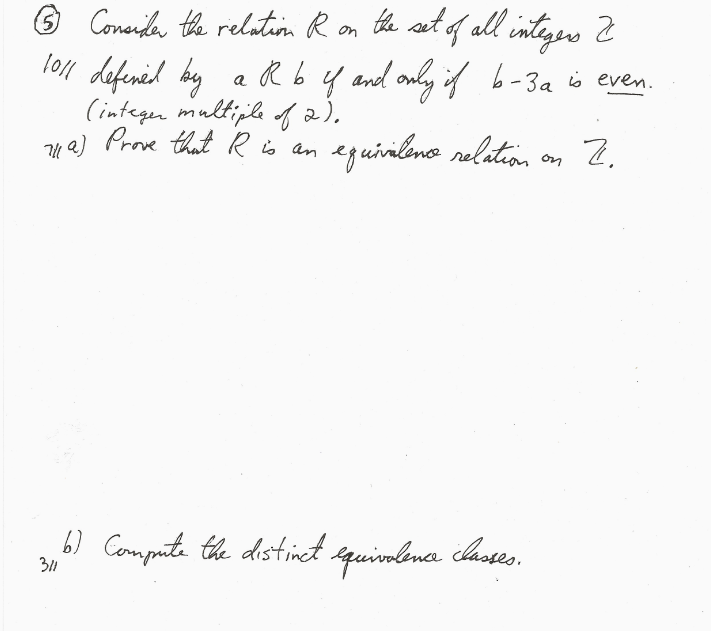 ⑤ Consider the relation R on the set of all integers ℤ
10// defined by a R b if and only if b-3a is even.
(integer multiple of 2).
7// a) Prove that R is an equivalence relation on ℤ.
3// b) Compute the distinct equivalence classes.